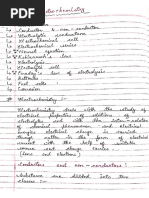 Electrochemistry
Conductor & non-conductor
Electrolytic conductance
Electrochemical cell
Electrochemical series
Nernst equation
Kohlrausch's law
Electrolysis
Faraday's law of electrolysis
Battery
Fuel cells
Corrosion
# Electrochemistry :-
Electrochemistry deals with the study of
electrical properties of solutions of
electrolytes and the inter-relation
of chemical phenomenon and electrical
energy electrical charge is carried
through matter in the form of electric
current with the half carriers of
electric current and
(ions and electrons)
Conductors and non-conductors
Substance are divided into two
classes :-